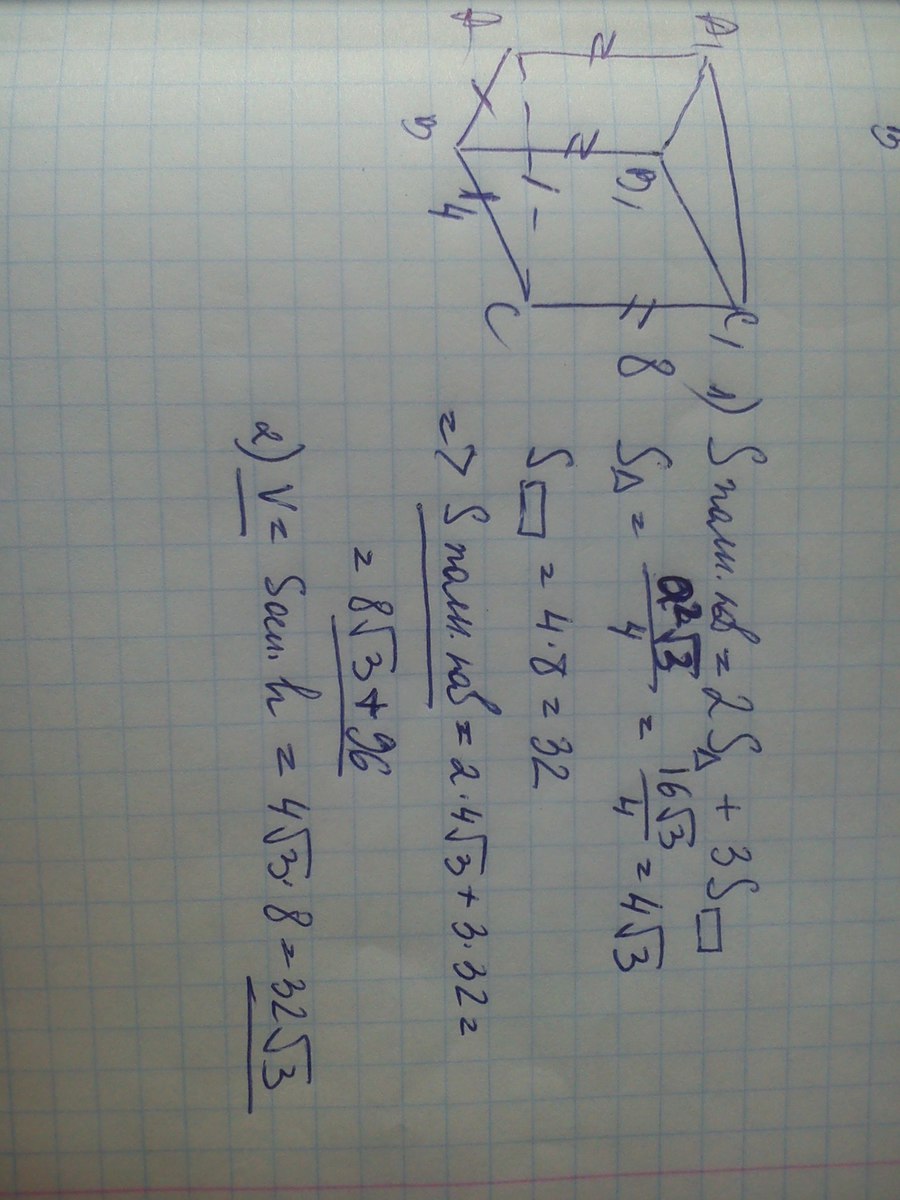 A₁
B₁
C₁
A
B
C
4
8
1) Sполн.пов = 2S△ + 3S□
S△ = a²√3/4 = 16√3/4 = 4√3
S□ = 4·8 = 32
=> Sполн.пов = 2·4√3 + 3·32 =
= 8√3 + 96
2) V = Sосн.h = 4√3·8 = 32√3